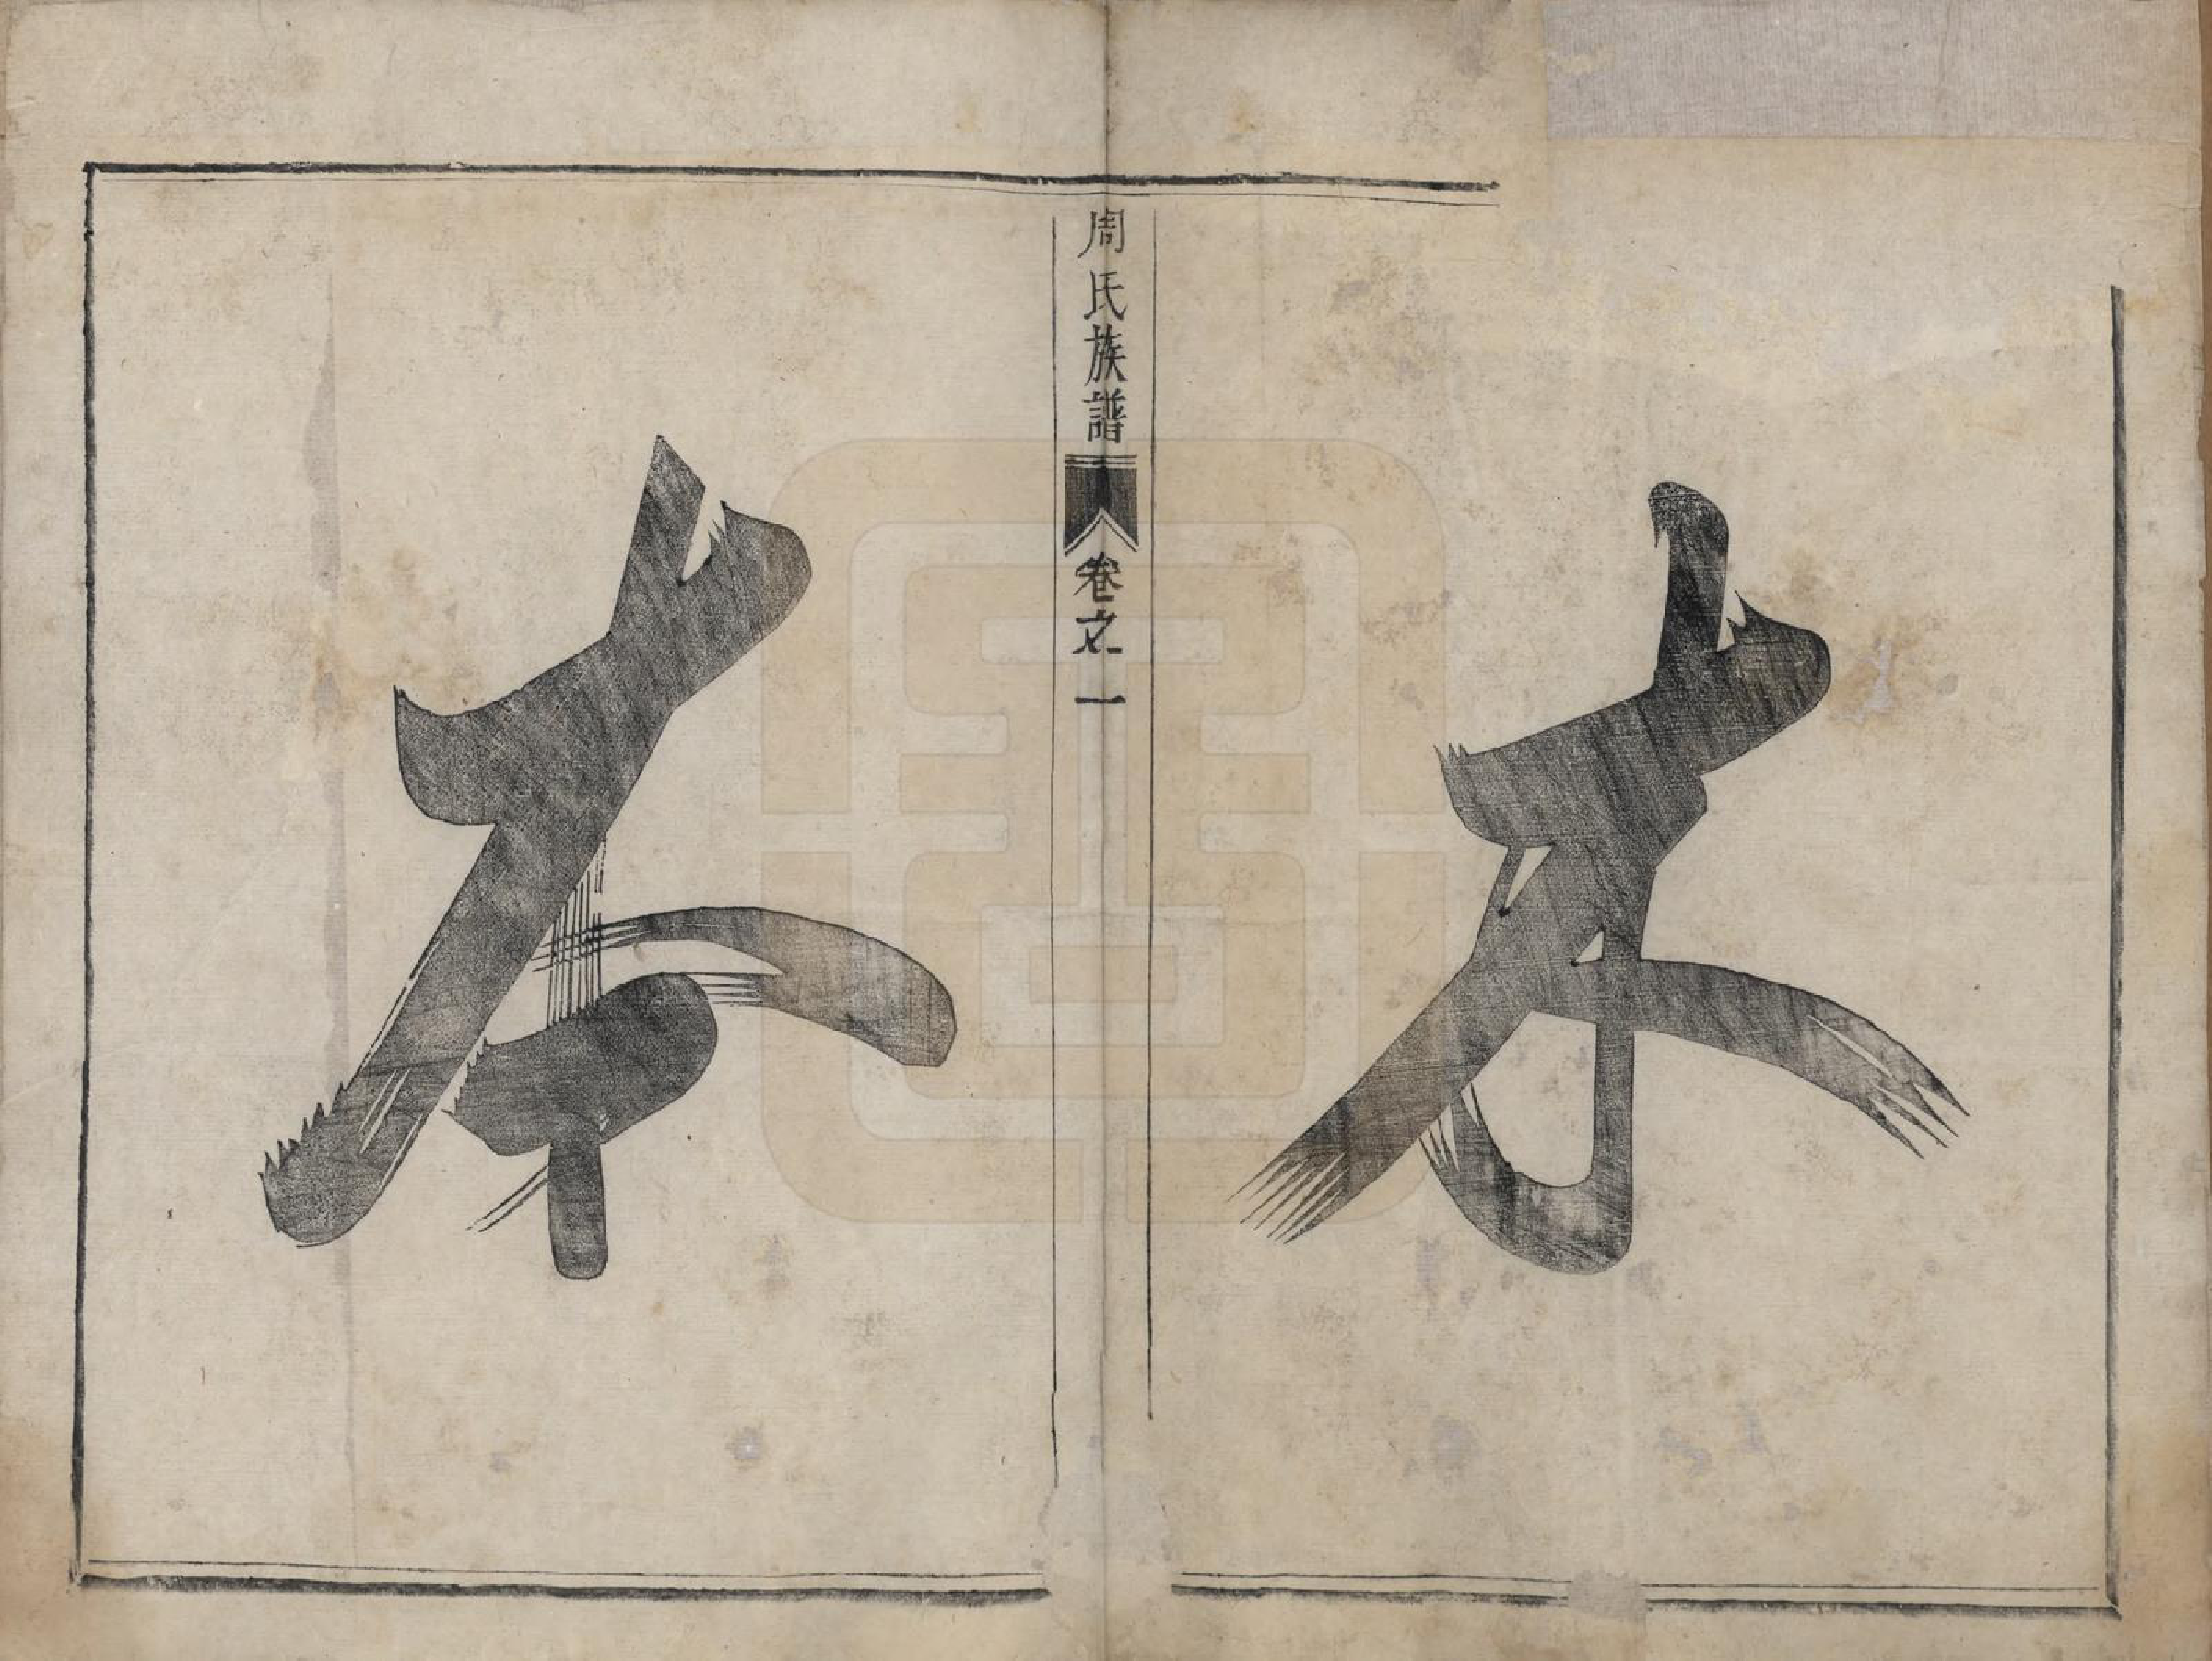 木
周氏族譜
卷之一
本